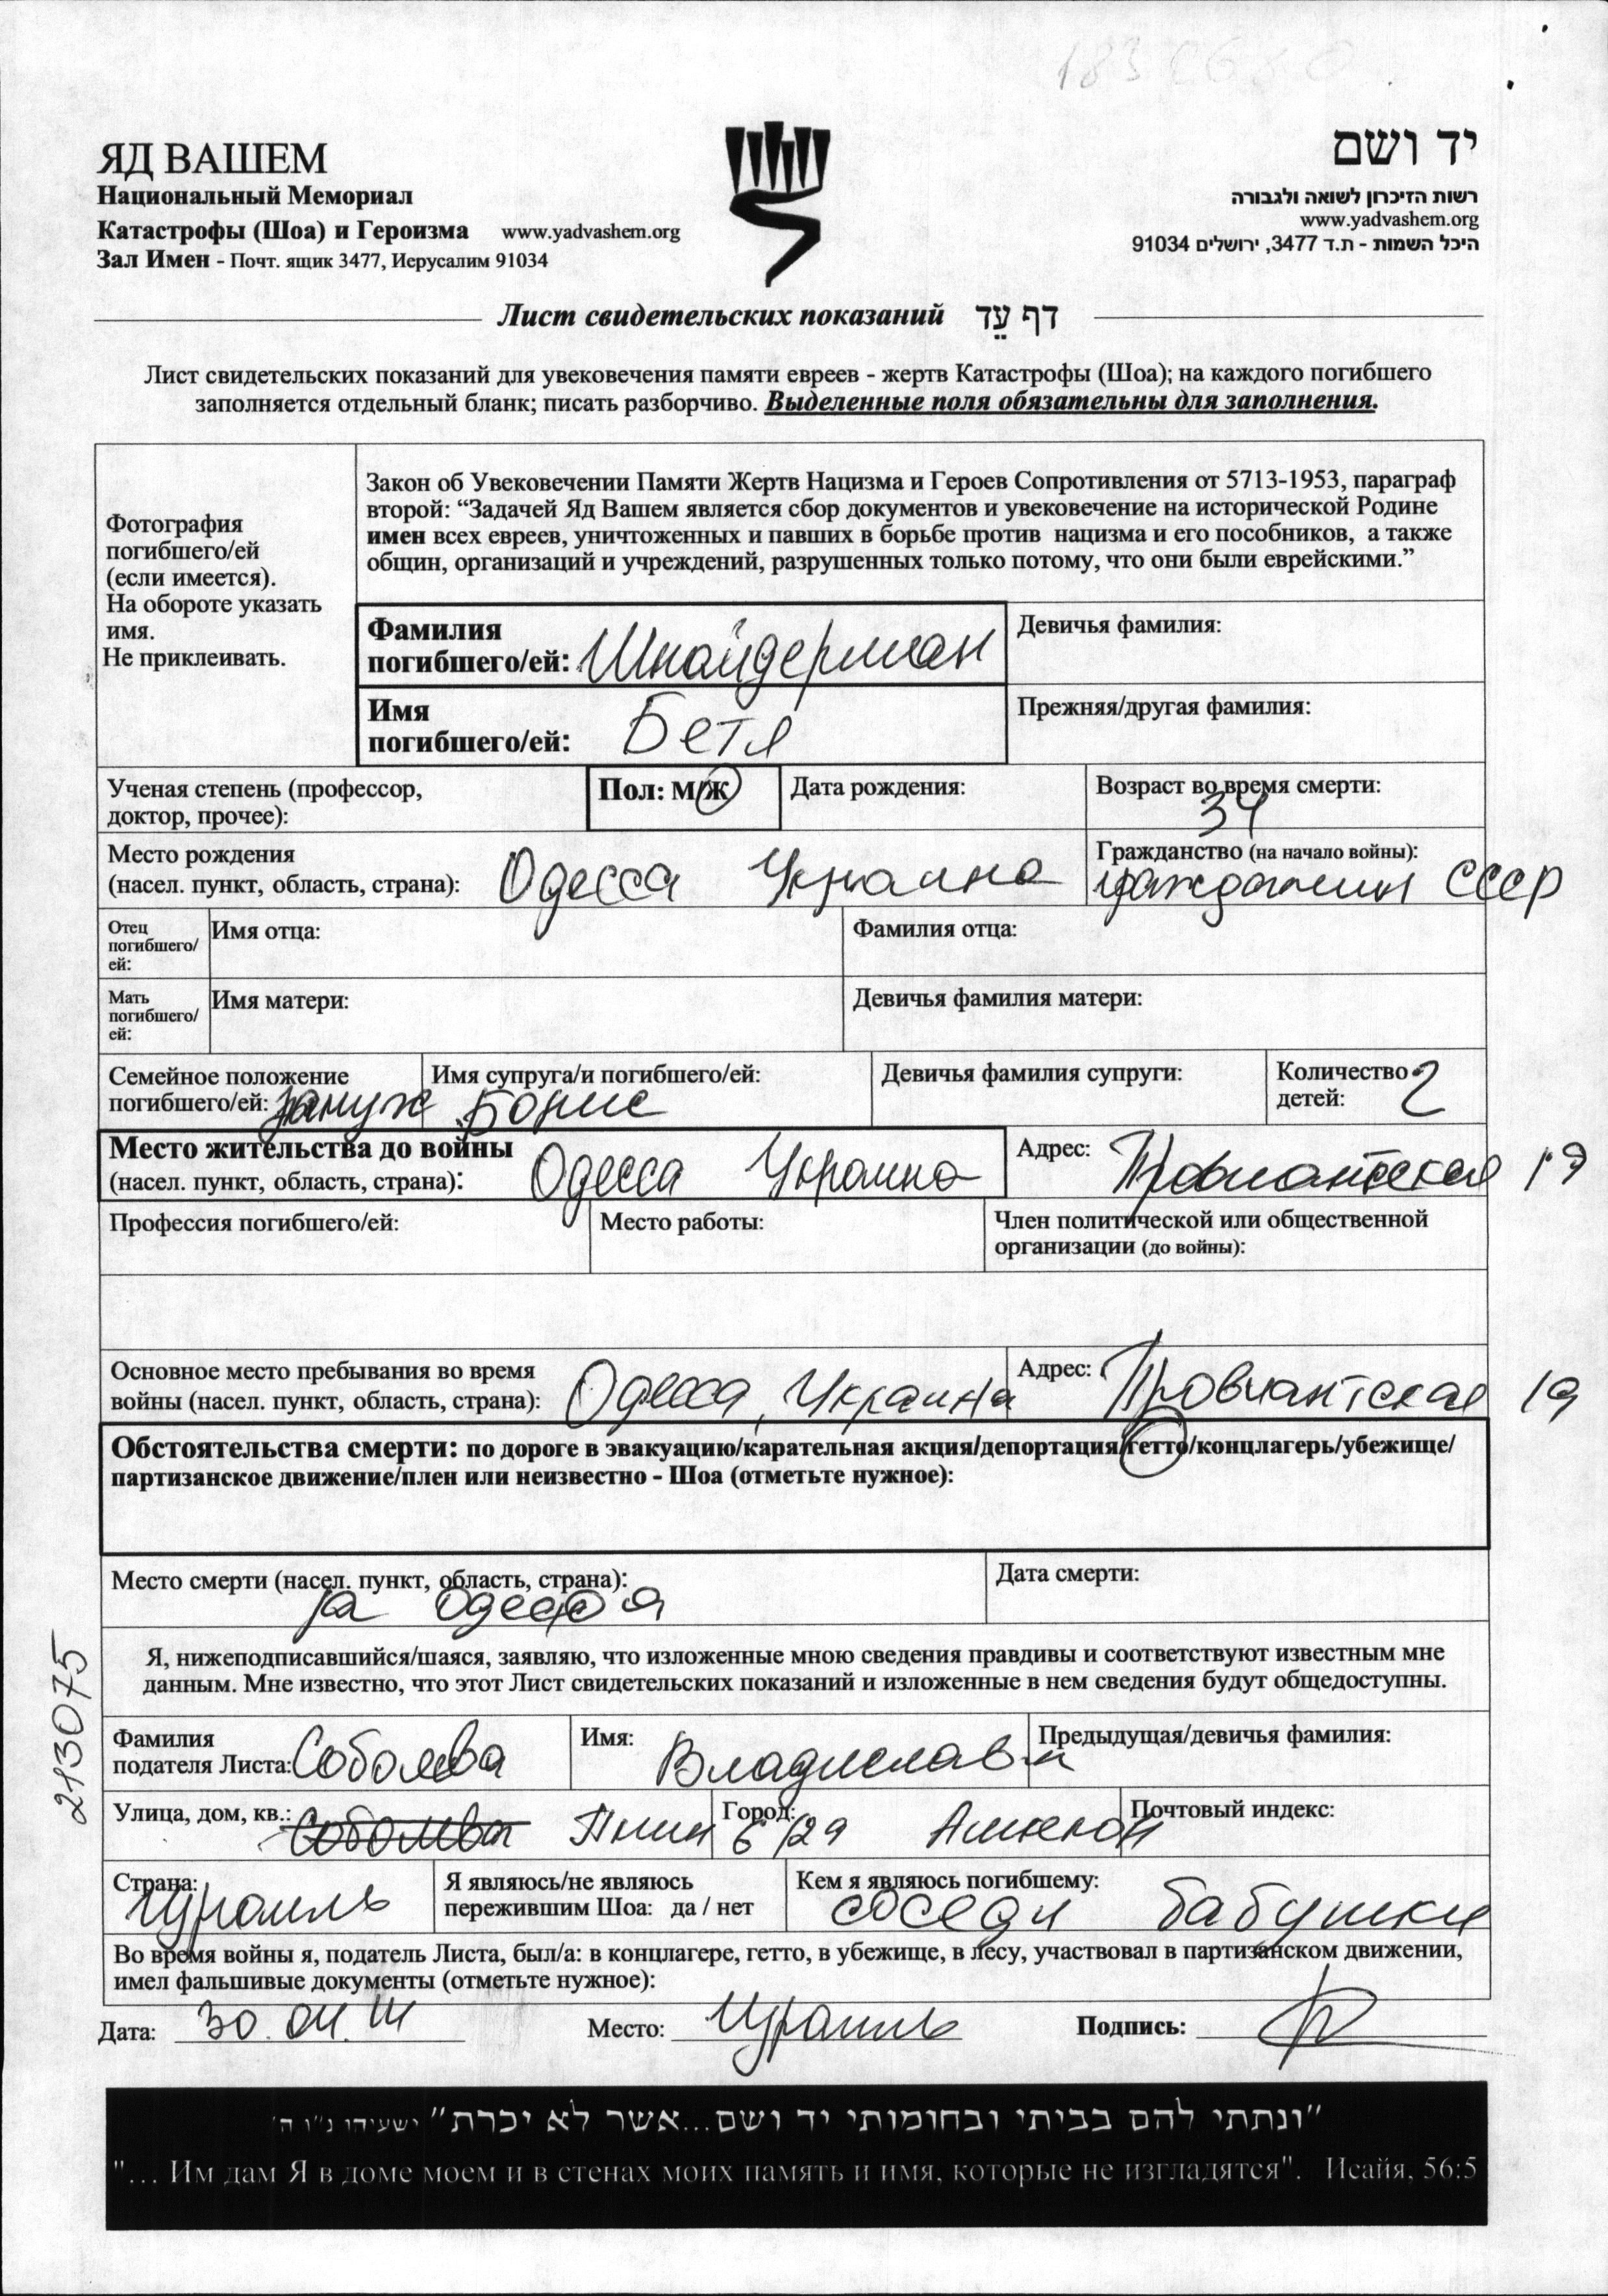 ЯД ВАШЕМ
Национальный Мемориал
Катастрофы (Шоа) и Героизма www.yadvashem.org
Зал Имен - Почт. ящик 3477, Иерусалим 91034
יד ושם
רשות הזיכרון לשואה ולגבורה
www.yadvashem.org
היכל השמות - ת.ד 3477, ירושלים 91034
Лист свидетельских показаний דף עֵד
Лист свидетельских показаний для увековечения памяти евреев - жертв Катастрофы (Шоа); на каждого погибшего
заполняется отдельный бланк; писать разборчиво. Выделенные поля обязательны для заполнения.
Фотография
погибшего/ей
(если имеется).
На обороте указать
имя.
Не приклеивать.
Закон об Увековечении Памяти Жертв Нацизма и Героев Сопротивления от 5713-1953, параграф
второй: “Задачей Яд Вашем является сбор документов и увековечение на исторической Родине
имен всех евреев, уничтоженных и павших в борьбе против нацизма и его пособников, а также
общин, организаций и учреждений, разрушенных только потому, что они были еврейскими.”
Фамилия
погибшего/ей: Шнайдерман
Девичья фамилия:
Имя
погибшего/ей: Бетя
Прежняя/другая фамилия:
Ученая степень (профессор,
доктор, прочее):
Пол: М/Ж
Дата рождения:
Возраст во время смерти:
34
Место рождения
(насел. пункт, область, страна): Одесса Украина
Гражданство (на начало войны):
гражданин СССР
Отец
погибшего/
ей:
Имя отца:
Фамилия отца:
Мать
погибшего/
ей:
Имя матери:
Девичья фамилия матери:
Семейное положение
погибшего/ей: замуж
Имя супруга/и погибшего/ей:
Борис
Девичья фамилия супруги:
Количество
детей: 2
Место жительства до войны
(насел. пункт, область, страна): Одесса Украина
Адрес: Провиантская 19
Профессия погибшего/ей:
Место работы:
Член политической или общественной
организации (до войны):
Основное место пребывания во время
войны (насел. пункт, область, страна): Одесса, Украина
Адрес: Провиантская 19
Обстоятельства смерти: по дороге в эвакуацию/карательная акция/депортация/гетто/концлагерь/убежище/
партизанское движение/плен или неизвестно - Шоа (отметьте нужное):
Место смерти (насел. пункт, область, страна):
за Одессой
Дата смерти:
Я, нижеподписавшийся/шаяся, заявляю, что изложенные мною сведения правдивы и соответствуют известным мне
данным. Мне известно, что этот Лист свидетельских показаний и изложенные в нем сведения будут общедоступны.
213075
Фамилия
подателя Листа: Соболева
Имя: Владислава
Предыдущая/девичья фамилия:
Улица, дом, кв.:
Город:
6/29
Почтовый индекс:
Страна:
Израиль
Я являюсь/не являюсь
пережившим Шоа: да / нет
Кем я являюсь погибшему:
соседи бабушки
Во время войны я, податель Листа, был/а: в концлагере, гетто, в убежище, в лесу, участвовал в партизанском движении,
имел фальшивые документы (отметьте нужное):
Дата: 30.04.
Место: Израиль
Подпись:
"ונתתי להם בביתי ובחומותי יד ושם...אשר לא יכרת" ישעיהו נ"ו ה'
"... Им дам Я в доме моем и в стенах моих память и имя, которые не изгладятся". Исайя, 56:5